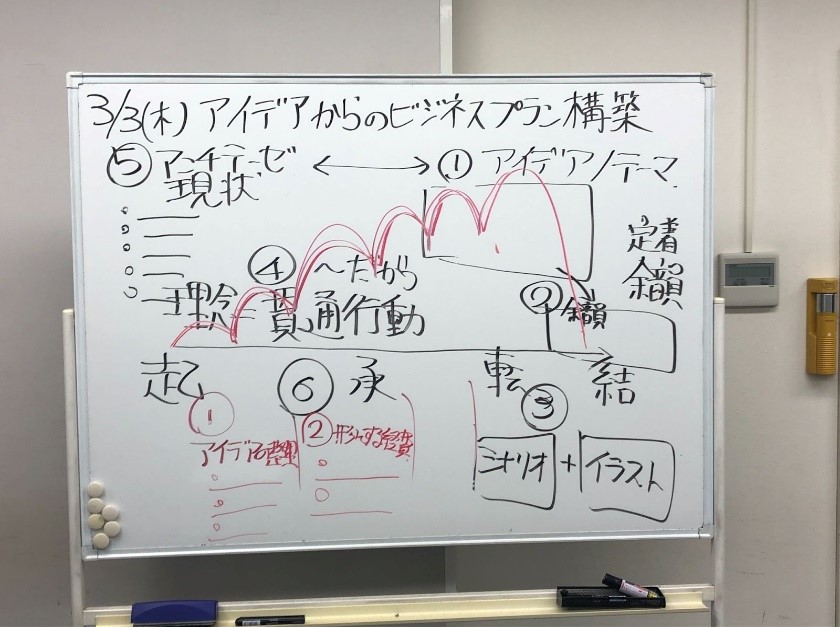 3/3(木) アイデアからのビジネスプラン構築
⑤ アンチテーゼ ⟷ ① アイデア/テーマ
現状
定着
金額
④ ~だから
理念一貫通行動
② 金額
起 ⑥ 承 転 結
③
① アイデアの整理
②
シナリオ + イラスト